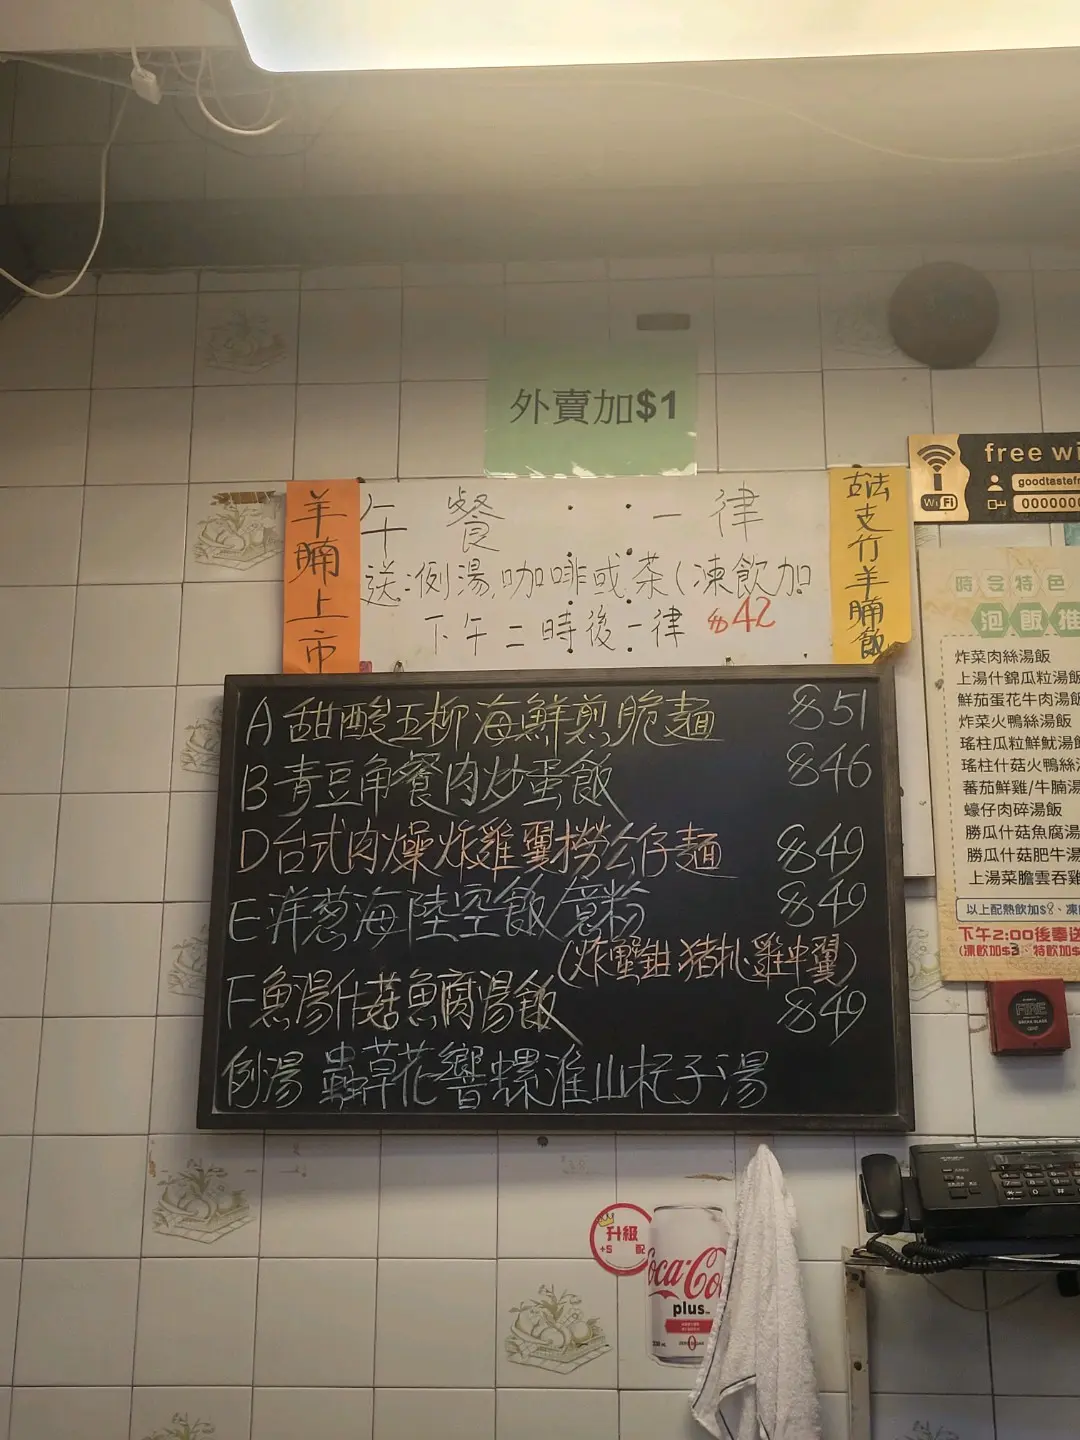 外賣加$1
羊腩上市
午餐：一律
送：例湯,咖啡或茶(凍飲加
下午二時後一律 $42
古法支竹羊腩飯
free wi
WiFi
goodtastefr
0000000
A 甜酸五柳海鮮煎脆麵 $51
B 青豆角餐肉炒蛋飯 $46
D 台式肉燥炸雞翼撈公仔麵 $49
E 洋葱海陸空飯/意粉 $49
(炸蟹鉗.豬扒.雞中翼)
F 魚湯什菇魚腐湯飯 $49
例湯 蟲草花響螺淮山杞子湯
時令特色
泡飯推
炸菜肉絲湯飯
上湯什錦瓜粒湯飯
鮮茄蛋花牛肉湯飯
炸菜火鴨絲湯飯
瑤柱瓜粒鮮魷湯飯
瑤柱什菇火鴨絲湯
蕃茄鮮雞/牛腩湯
蠔仔肉碎湯飯
勝瓜什菇魚腐湯
勝瓜什菇肥牛湯
上湯菜膽雲吞雞
以上配熱飲加$8、凍
下午2:00後奉送
(凍飲加$3、特飲加$
FIRE
升級
+5 配
oca-Co
plus